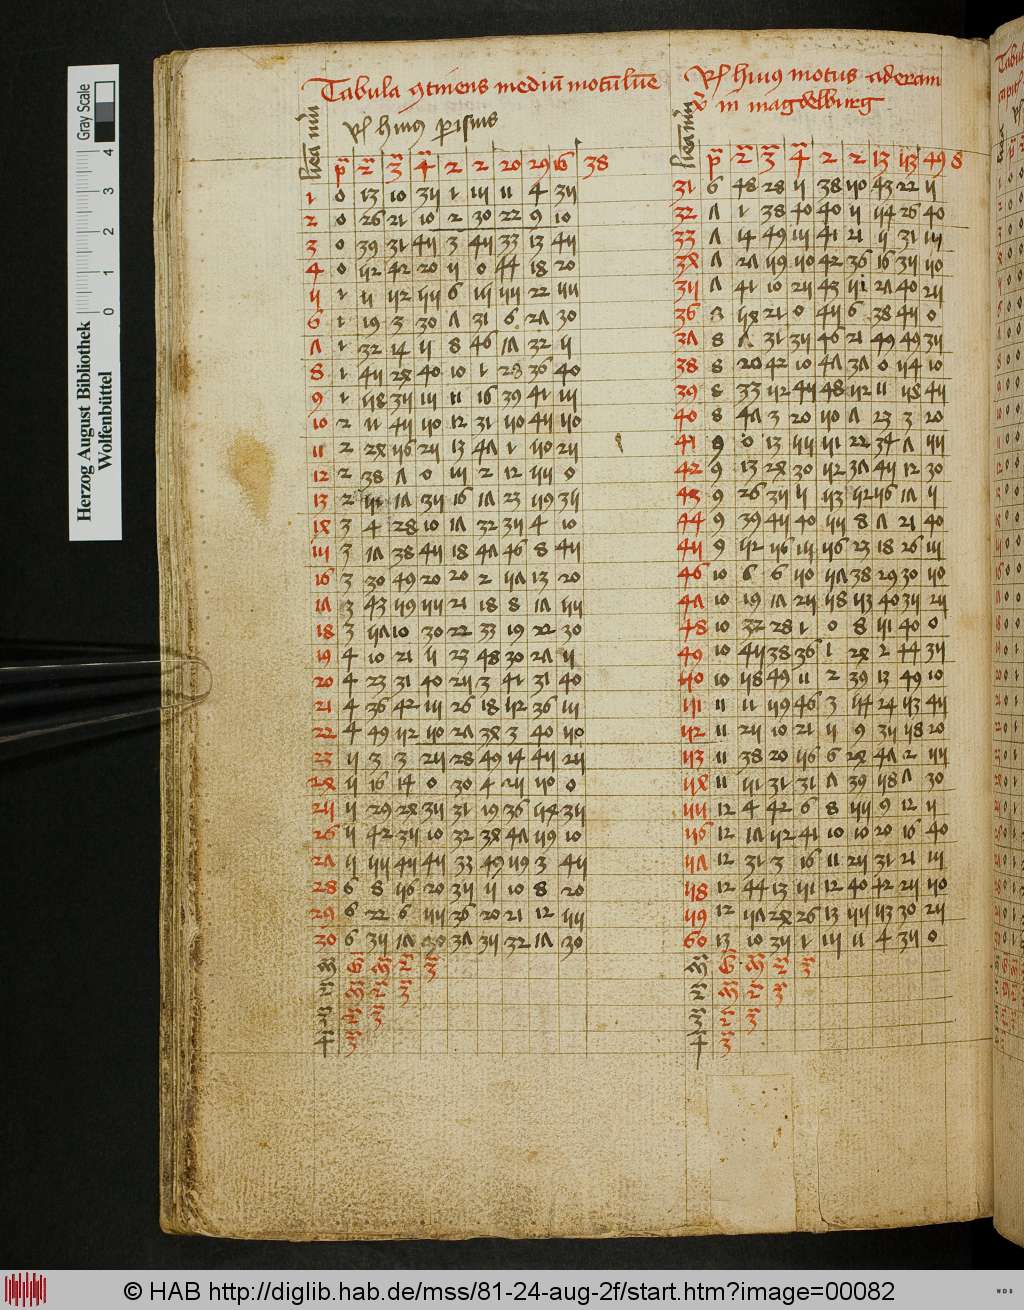 Tabula 9tinens mediū motū lune
rx hui9 parisius
linea nūi
p 2 3 4 2 2 20 29 16 38
1 0 13 10 35 1 15 11 4 35
2 0 26 21 10 2 30 22 9 10
3 0 39 31 45 3 45 33 13 45
4 0 52 42 20 5 0 44 18 20
5 1 5 52 55 6 15 55 22 55
6 1 19 3 30 7 31 6 27 30
7 1 32 14 5 8 46 17 32 5
8 1 45 24 40 10 1 28 36 40
9 1 58 35 15 11 16 39 41 15
10 2 11 45 50 12 31 50 45 50
11 2 24 56 25 13 47 1 50 25
12 2 38 7 0 15 2 12 55 0
13 2 51 17 35 16 17 23 59 35
14 3 4 28 10 17 32 35 4 10
15 3 17 38 45 18 47 46 8 45
16 3 30 49 20 20 2 57 13 20
17 3 43 59 55 21 18 8 17 55
18 3 57 10 30 22 33 19 22 30
19 4 10 21 5 23 48 30 27 5
20 4 23 31 40 25 3 41 31 40
21 4 36 42 15 26 18 52 36 15
22 4 49 52 50 27 34 3 40 50
23 5 3 3 25 28 49 14 45 25
24 5 16 14 0 30 4 25 50 0
25 5 29 24 35 31 19 36 54 35
26 5 42 35 10 32 34 47 59 10
27 5 55 45 45 33 49 59 3 45
28 6 8 56 20 35 5 10 8 20
29 6 22 6 55 36 20 21 12 55
30 6 35 17 30 37 35 32 17 30
rx hui9 motus ad eram
in magdelburg
linea nūi
p 2 3 4 2 2 13 53 49 8
31 6 48 28 5 38 50 43 22 5
32 7 1 38 40 40 5 54 26 40
33 7 14 49 15 41 21 5 31 15
34 7 27 59 50 42 36 16 35 50
35 7 41 10 25 43 51 27 40 25
36 54 21 0 45 6 38 45 0
37 8 7 31 35 46 21 49 49 35
38 8 20 42 10 47 37 0 54 10
39 8 33 52 45 48 52 11 58 45
40 8 47 3 20 50 7 23 3 20
41 9 0 13 55 51 22 34 7 55
42 9 13 24 30 52 37 45 12 30
43 9 26 35 5 53 52 56 17 5
44 9 39 45 40 55 8 7 21 40
45 9 52 56 15 56 23 18 26 15
46 10 6 6 50 57 38 29 30 50
47 10 19 17 25 58 53 40 35 25
48 10 32 28 1 0 8 51 40 0
49 10 45 38 36 1 24 2 44 35
50 10 58 49 11 2 39 13 49 10
51 11 11 59 46 3 54 24 53 45
52 11 25 10 21 5 9 35 58 20
53 11 38 20 56 6 24 47 2 55
54 11 51 31 31 7 39 58 7 30
55 12 4 42 6 8 55 9 12 5
56 12 17 52 41 10 10 20 16 40
57 12 31 3 16 11 25 31 21 15
58 12 44 13 51 12 40 42 25 50
59 12 57 24 26 13 55 53 30 25
60 13 10 35 1 15 11 4 35 0
Herzog August Bibliothek
Wolfenbüttel
0 1 2 3 4
Gray Scale
© HAB http://diglib.hab.de/mss/81-24-aug-2f/start.htm?image=00082